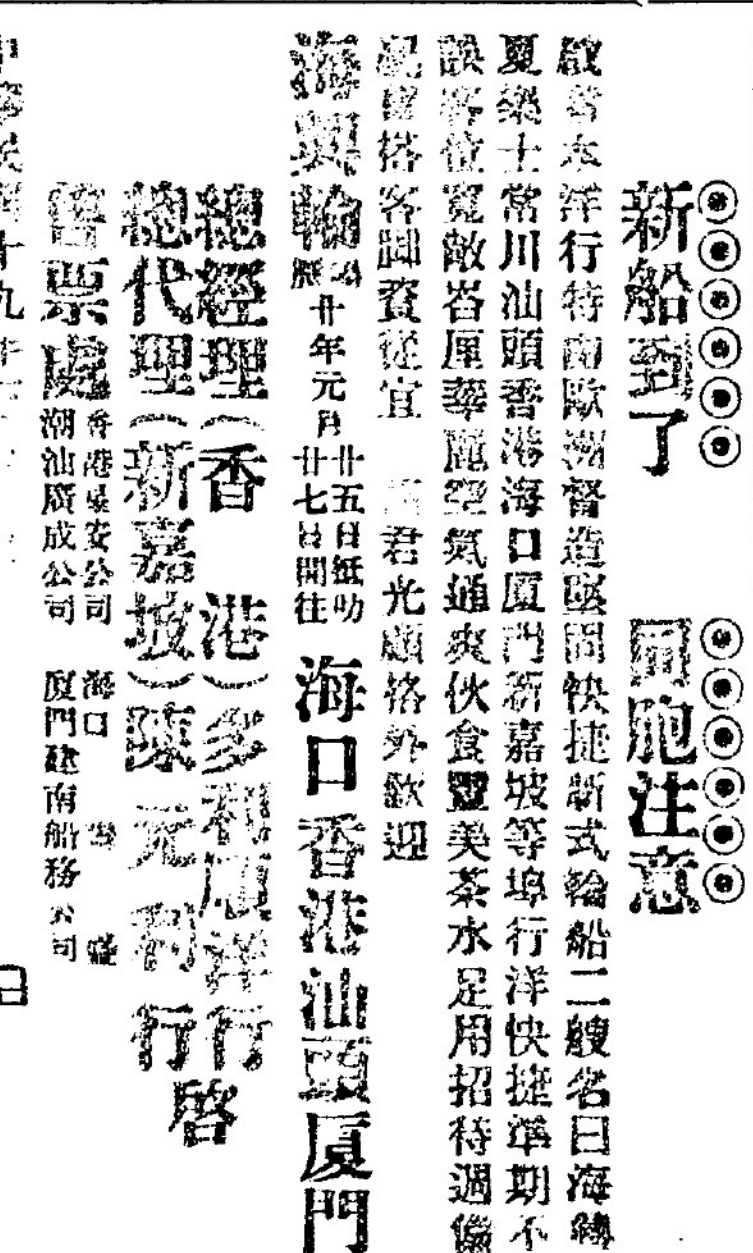 新船到了 同胞注意
啟者本洋行特向歐洲督造堅固快捷新式輪船二艘名曰海
夏樂士常川汕頭香港海口厦門新嘉坡等埠行洋快捷準期不
誤客位寬敞岩厘華麗空氣通爽伙食豐美茶水足用招待週
搭客脚資從宜 君光顧格外歡迎
海興輪 廿年元月廿五日抵叻廿七日開往 海口香港汕頭厦門
總經理(香港)多利順洋行
總代理(新嘉坡)陳元利行
啓
售票處 香港 安公司 海口
潮汕廣成公司 厦門建南船務公司